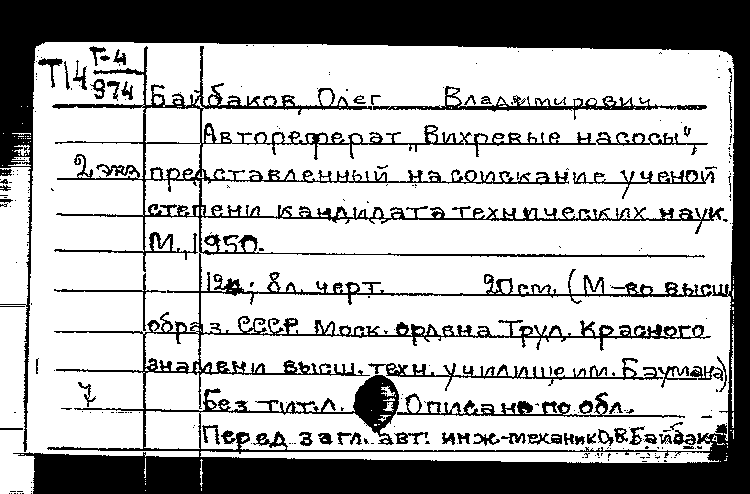 Т14 Г-4
974
Байбаков, Олег Владимирович.
Автореферат „Вихревые насосы",
2 экз представленный на соискание ученой
степени кандидата технических наук.
М., 1950.
12 л; 8 л. черт. 20 см. (М-во высш
образ. СССР. Моск. ордена Труд. Красного
знамени высш. техн. училище им. Баумана)
7 Без тит. л. Описано по обл.
Перед загл. авт: инж-механик О,В. Байбаков